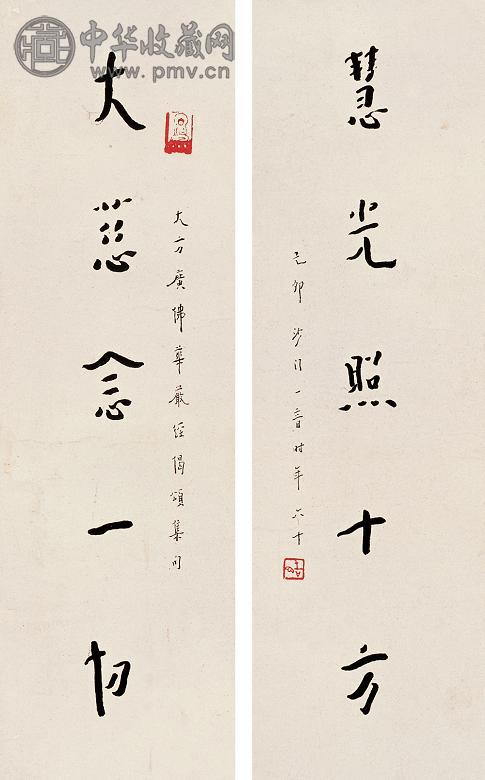 中华收藏网
www.pmv.cn
慧光照十方
己卯沙门一音时年六十
大方廣佛華嚴經偈頌集句
大慈念一切